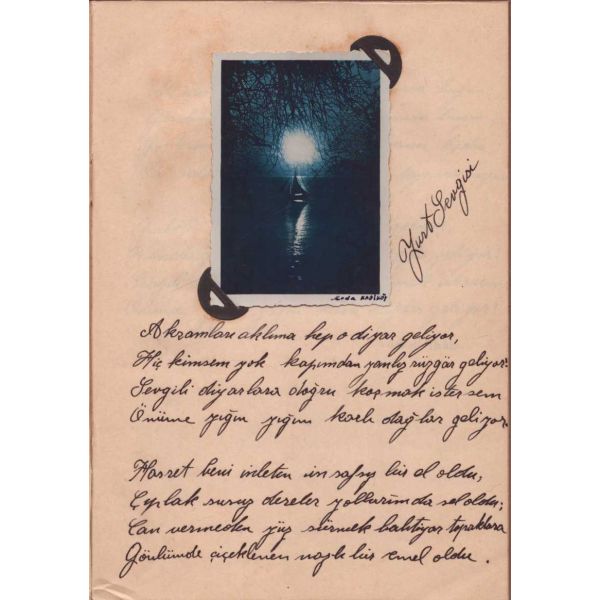 Moda KADIKÖY
Yurt Sevgisi
Akşamları aklıma hep o diyar geliyor,
Hiç kimsem yok kapımdan yanlız rüzgâr geliyor.
Sevgili diyarlara doğru koşmak istersem
Önüme yığın yığın karlı dağlar geliyor.
Hasret beni inleten insafsız bir el oldu,
Çıplak susuz dereler yollarımda sel oldu;
Can vermeden yüz sürmek bahtiyar topraklara
Gönlümde çiçeklenen nazlı bir emel oldu.